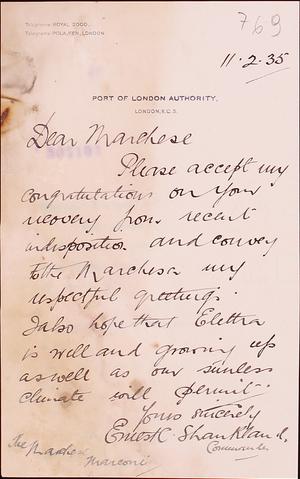 769
Telephone: ROYAL 2000.
Telegrams: POLA, KEN, LONDON
11·2·35
PORT OF LONDON AUTHORITY,
LONDON, E.C.3.
Dear Marchese
Please accept my
congratulations on your
recovery from recent
indisposition and convey
to the Marchesa my
respectful greetings.
I also hope that Elettra
is well and growing up
as well as our sunless
climate will permit.
Yours sincerely
Ernest C. Shankland.
Commander
The Marchese
Marconi